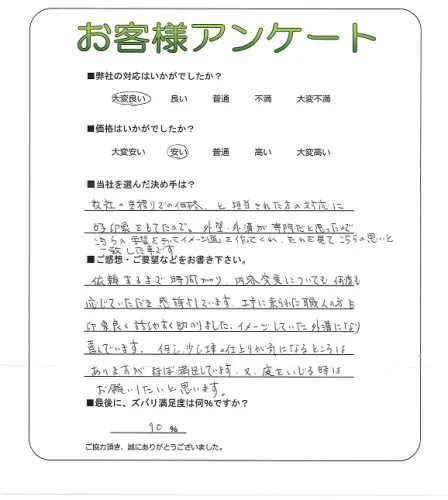 お客様アンケート
■弊社の対応はいかがでしたか?
大変良い 良い 普通 不満 大変不満
■価格はいかがでしたか?
大変安い 安い 普通 高い 大変高い
■当社を選んだ決め手は?
数社の見積りでの価格、と担当された方の対応に
好印象をもてたので。外壁・外溝が専門だと思ったので
こちらの希望をきいてイメージ画を作ってくれ、それを見てこちらの思いと
一致した事です
■ご感想・ご要望などをお書き下さい。
依頼するまで時間かかり、内容変更についても何度も
応じていただき感謝しています。工事に来られた職人の方も
印象良く話しやすく助かりました、イメージしていた外溝になり
喜んでいます。但し、少し塀の仕上りが気になるところは
ありますがほぼ満足しています。又、庭をいじる時は
お願いしたいと思います。
■最後に、ズバリ満足度は何%ですか?
90 %
ご協力頂き、誠にありがとうございました。